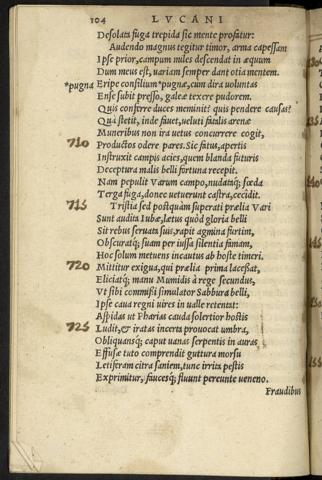 104 LVCANI
Desolata fuga trepida sic mente profatur:
Audendo magnus tegitur timor, arma capessam
Ipse prior, campum miles descendat in æquum
Dum meus est, uariam semper dant otia mentem.
*pugna Eripe consilium *pugna, cum dira uoluntas
Ense subit presso, galeæ texere pudorem.
Quis conferre duces meminit? quis pendere causas?
Quà stetit, inde fauet, ueluti fatalis arenæ
Muneribus non ira uetus concurrere cogit,
710 Productos odere pares. Sic fatus, apertis
Instruxit campis acies, quem blanda futuris
Deceptura malis belli fortuna recepit.
Nam pepulit Varum campo, nudatiq; fœda
Terga fuga, donec uetuerunt castra, cecidit.
715 Tristia sed postquàm superati prælia Vari
Sunt audita Iubæ, lætus quòd gloria belli
Sit rebus seruata suis, rapit agmina furtim,
Obscuratq; suam per iussa silentia famam,
Hoc solum metuens incautus ab hoste timeri.
720 Mittitur exigua, qui prælia prima lacessat,
Eliciatq; manu Numidis à rege secundus,
Vt sibi commissi simulator Sabbura belli,
Ipse caua regni uires in ualle retentat:
Aspidas ut Pharias cauda solertior hostis
725 Ludit, & iratas incerta prouocat umbra,
Obliquansq; caput uanas serpentis in auras
Effusæ tuto comprendit guttura morsu
Letiferam citra saniem, tunc irrita pestis
Exprimitur, faucesq; fluunt pereunte ueneno.
Fraudibus